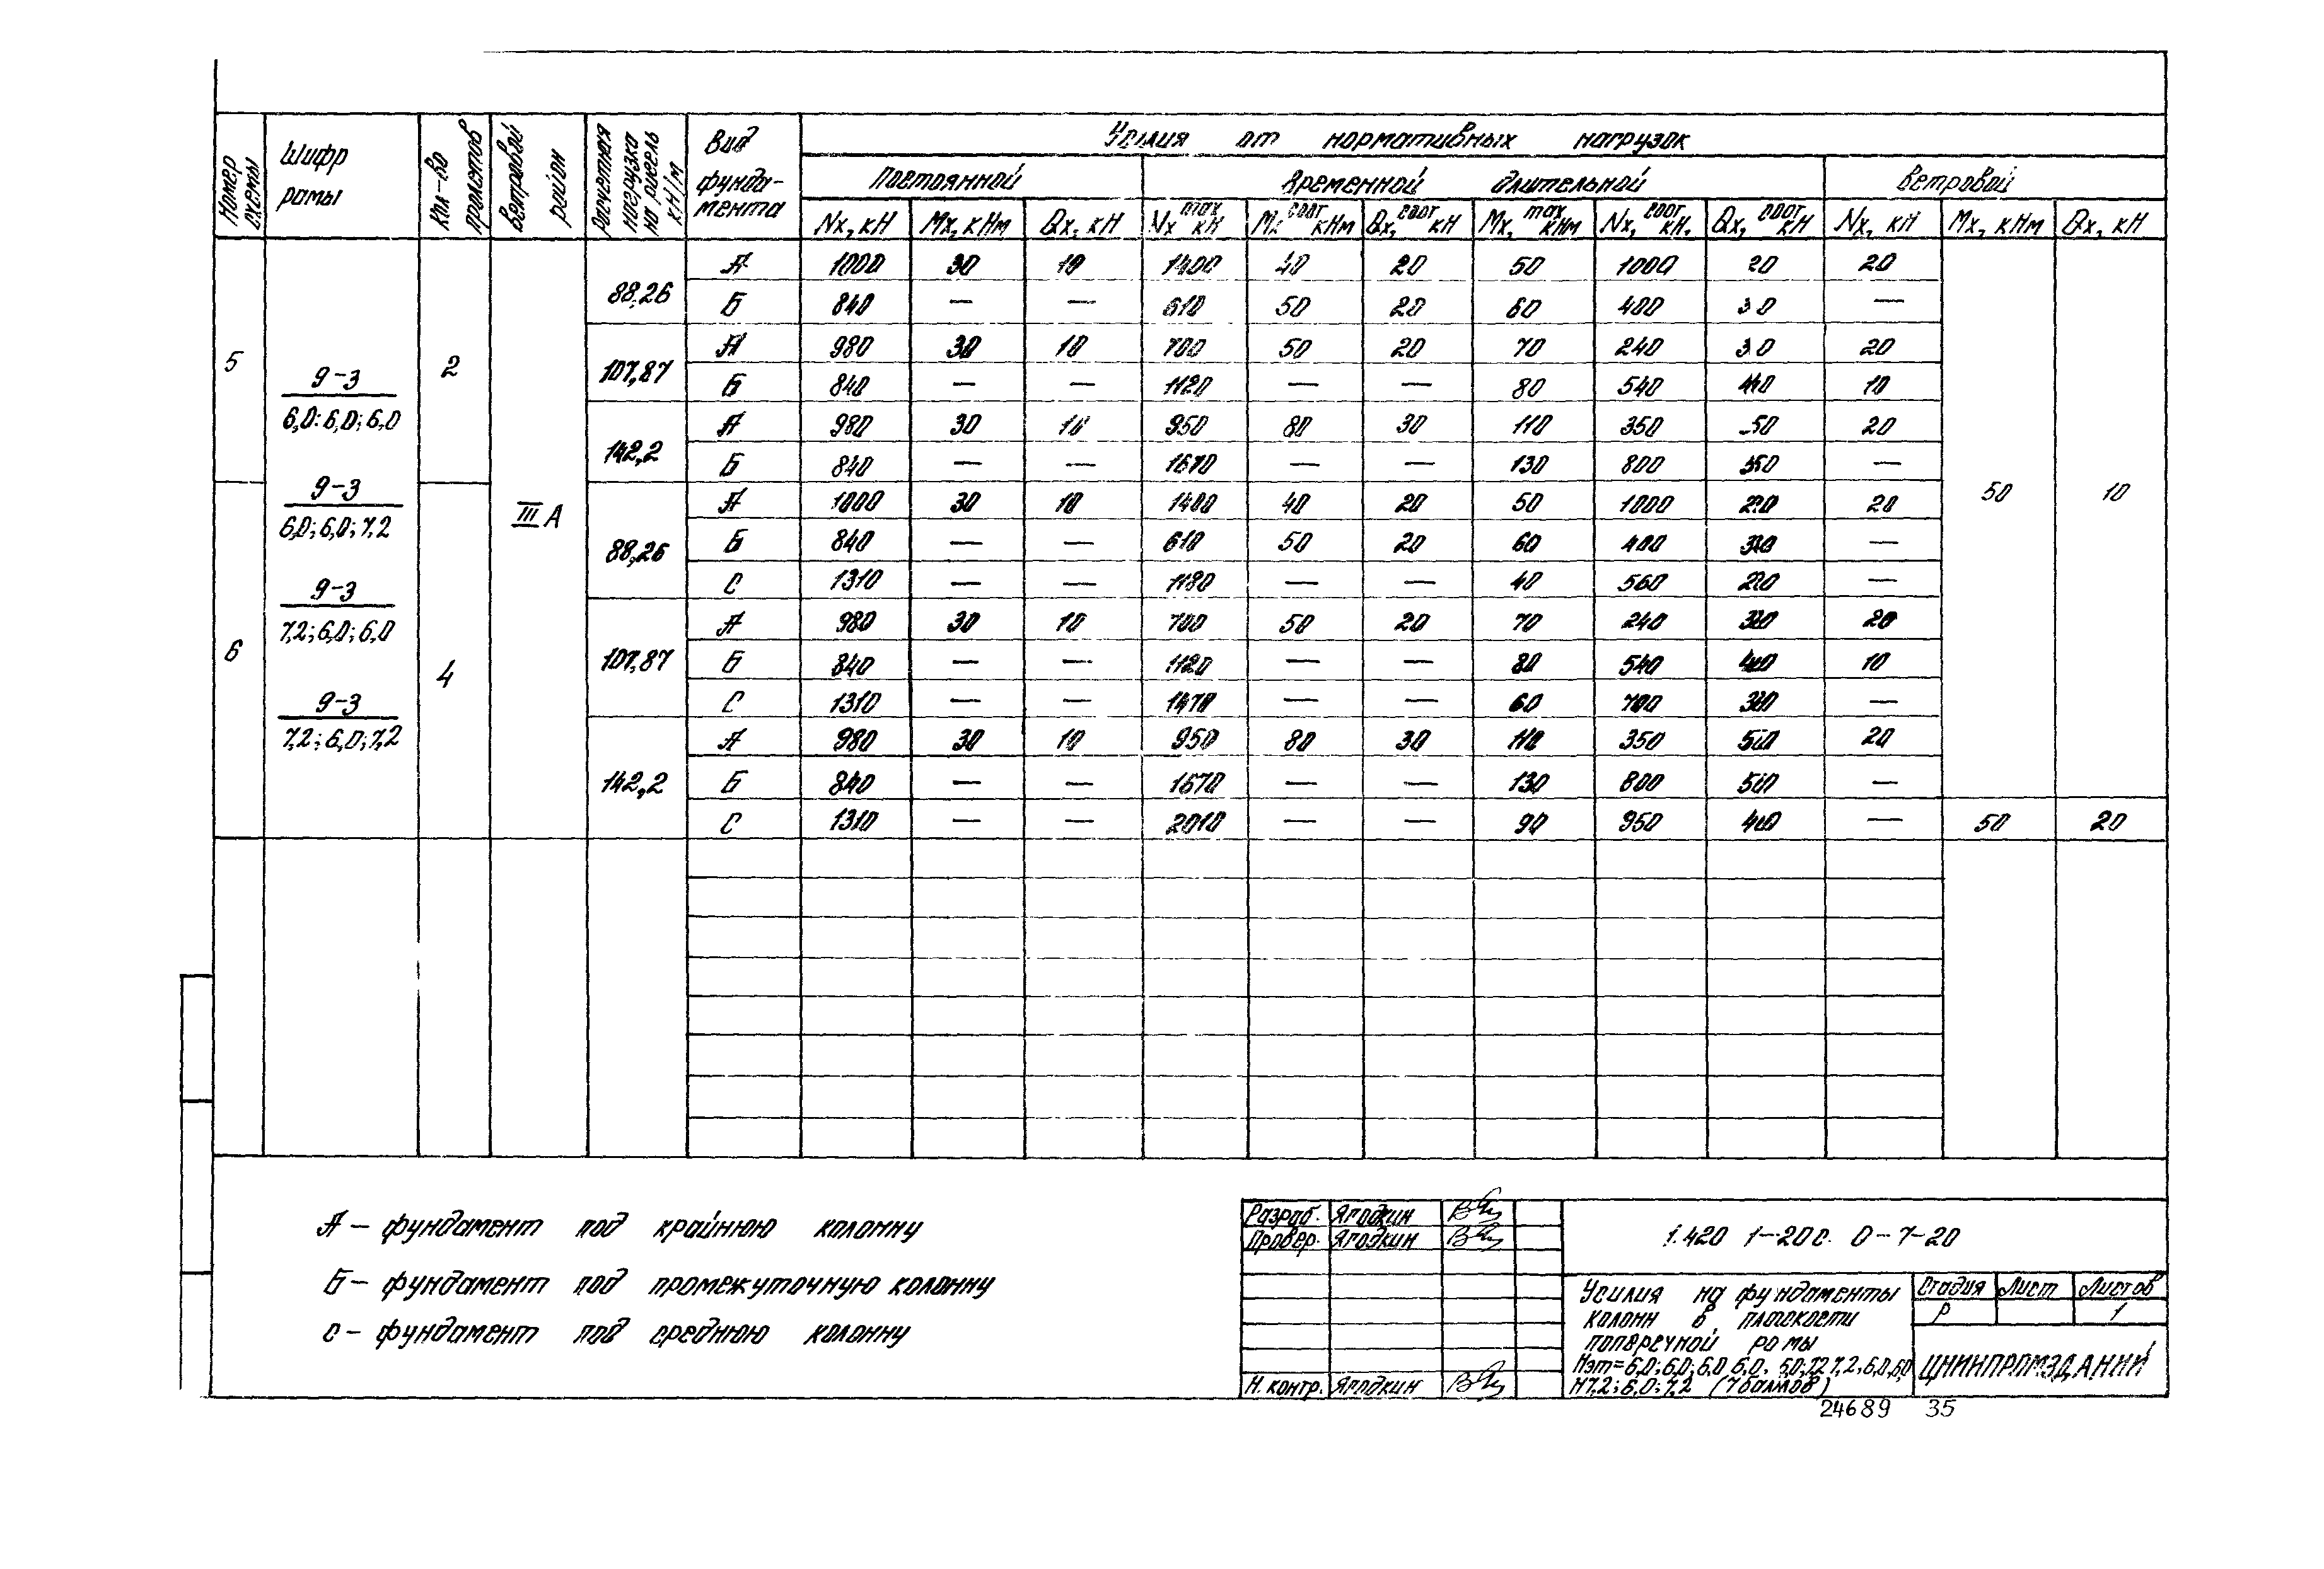 Номер схемы | Шифр рамы | Кол-во пролетов | Ветровой район | Расчетная нагрузка на ригель кН/м | Вид фунда-мента | Усилия от нормативных нагрузок
Постоянной | Временной длительной | Ветровой
Nx, кН | Mx, кНм | Qx, кН | Nx max кН | Mx соот кНм | Qx, соот кН | Mx, max кНм | Nx, соот кН. | Qx, соот кН | Nx, кН | Mx, кНм | Qx, кН
5 | 9-3 6,0:6,0;6,0 | 2 | III А
9-3 6,0;6,0;7,2
6 | 9-3 7,2;6,0;6,0 | 4
9-3 7,2;6,0;7,2
88,26 | А | 1000 | 30 | 10 | 1400 | 40 | 20 | 50 | 1000 | 20 | 20
Б | 840 | — | — | 610 | 50 | 20 | 60 | 400 | 30 | —
107,87 | А | 980 | 30 | 10 | 700 | 50 | 20 | 70 | 240 | 30 | 20
Б | 840 | — | — | 1120 | — | — | 80 | 540 | 40 | 10
142,2 | А | 980 | 30 | 10 | 950 | 80 | 30 | 110 | 350 | 50 | 20
Б | 840 | — | — | 1670 | — | — | 130 | 800 | — | 50 | 10
88,26 | А | 1000 | 30 | 10 | 1400 | 40 | 20 | 50 | 1000 | 20
Б | 840 | — | — | 610 | 50 | 20 | 60 | 400 | —
С | 1310 | — | — | 1180 | — | — | 40 | 560 | —
107,87 | А | 980 | 30 | 10 | 700 | 50 | 20 | 70 | 240 | 20
Б | 840 | — | — | 1120 | — | — | 80 | 540 | 10
С | 1310 | — | — | 1470 | — | — | 60 | 700 | —
142,2 | А | 980 | 30 | 10 | 950 | 80 | 30 | 110 | 350 | 50 | 20
Б | 840 | — | — | 1670 | — | — | 130 | 800 | 50 | —
С | 1310 | — | — | 2010 | — | — | 90 | 950 | 40 | — | 50 | 20
А – фундамент под крайнюю колонну
Б – фундамент под промежуточную колонну
С – фундамент под среднюю колонну
Разраб. Ягодкин
Провер. Ягодкин
Н. контр. Ягодкин
1.420 1-20с. 0-7-20
Усилия на фундаменты
колонн в плоскости
поперечной рамы
Нэт=6,0;6,0;6,0 6,0. 6,0;7,2 7,2;6,0;6,0
и 7,2;6,0;7,2 (7 баллов)
Стадия Лист Листов
Р 1
ЦНИИПРОМЗДАНИЙ
24689 35